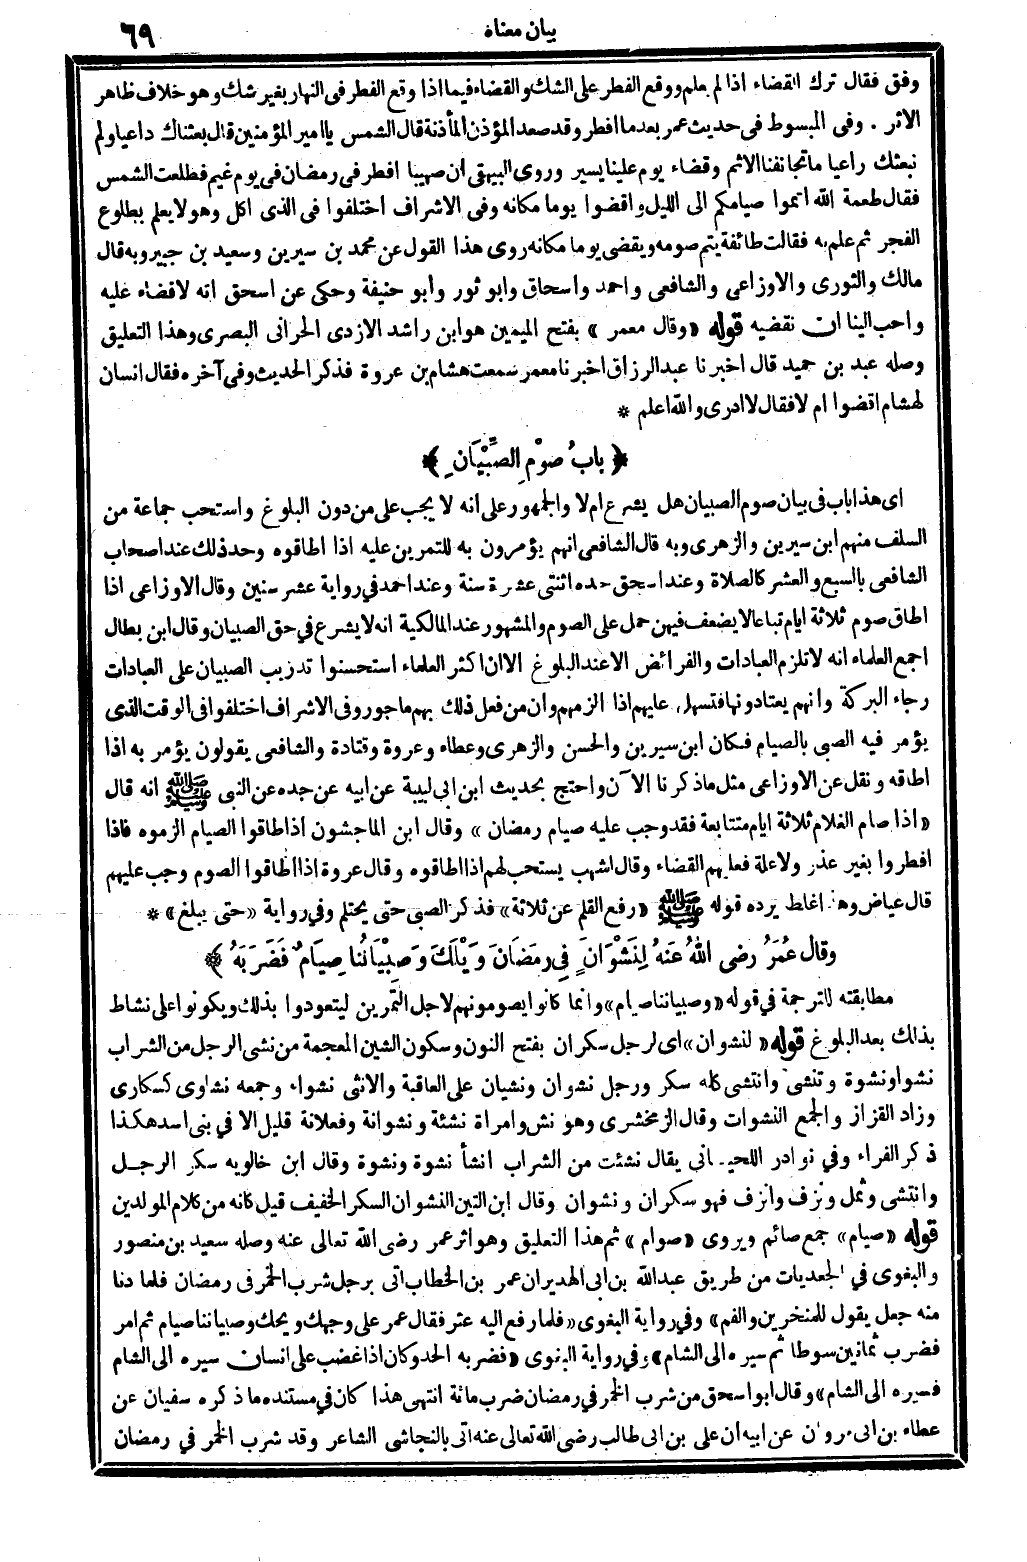 بيان معناه
٦٩
وفق فقال ترك القضاء اذا لم يعلم ووقع الفطر على الشك والقضاء فيما اذا وقع الفطر فى النهار بغير شك وهو خلاف ظاهر
الاثر . وفى المبسوط فى حديث عمر بعد ما افطر وقد صعد المؤذن المأذنة قال الشمس يا امير المؤمنين قال بعثناك داعيا ولم
نبعثك راعيا ما تجانفنا الاثم وقضاء يوم علينا يسير وروى البيهقى ان صهيبا افطر فى رمضان فى يوم غيم فطلعت الشمس
فقال طعمة الله اتموا صيامكم الى الليل واقضوا يوما مكانه وفى الاشراف اختلفوا فى الذى اكل وهو لا يعلم بطلوع
الفجر ثم علم به فقالت طائفة يتم صومه ويقضى يوما مكانه روى هذا القول عن محمد بن سيرين وسعيد بن جبير وبه قال
مالك والثورى والاوزاعى والشافعى واحمد واسحاق وابو ثور وأبو حنيفة وحكى عن اسحق انه لا قضاء عليه
واحب الينا ان نقضيه قوله «وقال معمر» بفتح الميمين هو ابن راشد الازدى الحرانى البصرى وهذا التعليق
وصله عبد بن حميد قال اخبرنا عبد الرزاق اخبرنا معمر سمعت هشام بن عروة فذكر الحديث وفى آخره فقال انسان
لهشام اقضوا ام لا فقال لا ادرى والله اعلم *
﴿ باب صوْم الصِّبْيَانِ ﴾
اى هذا باب فى بيان صوم الصبيان هل يشرع ام لا والجمهور على انه لا يجب على من دون البلوغ واستحب جماعة من
السلف منهم ابن سيرين والزهرى وبه قال الشافعى انهم يؤمرون به للتمرين عليه اذا اطاقوه وحد ذلك عند اصحاب
الشافعى بالسبع والعشر كالصلاة وعند اسحق حده اثنتى عشرة سنة وعند احمد في رواية عشر سنين وقال الاوزاعى اذا
اطاق صوم ثلاثة ايام تباعا لا يضعف فيهن حمل على الصوم والمشهور عند المالكية انه لا يشرع في حق الصبيان وقال ابن بطال
اجمع العلماء انه لا تلزم العبادات والفرائض الا عند البلوغ الا ان اكثر العلماء استحسنوا تدريب الصبيان على العبادات
رجاء البركة وانهم يعتادونها فتسهل عليهم اذا الزمهم وان من فعل ذلك بهم ماجور وفى الاشراف اختلفوا فى الوقت الذى
يؤمر فيه الصبى بالصيام فكان ابن سيرين والحسن والزهرى وعطاء وعروة وقتادة والشافعى يقولون يؤمر به اذا
اطاقه ونقل عن الاوزاعى مثل ما ذكرنا الآن واحتج بحديث ابن ابى لبيبة عن ابيه عن جده عن النبى ﷺ انه قال
«اذا صام الغلام ثلاثة ايام متتابعة فقد وجب عليه صيام رمضان» وقال ابن الماجشون اذا طاقوا الصيام الزموه فاذا
افطروا بغير عذر ولا علة فعليهم القضاء وقال اشهب يستحب لهم اذا اطاقوه وقال عروة اذا اطاقوا الصوم وجب عليهم
قال عياض وهذا غلط يرده قوله ﷺ «رفع القلم عن ثلاثة» فذكر الصبى حتى يحتلم وفي رواية «حتى يبلغ» *
وقال عُمَرُ رضى اللهُ عنهُ لِنَشْوَانَ فِي رمَضَانَ وَيْلَكَ وَصِبْيَانُنَا صِيَامٌ فَضَرَبَهُ ﴾
مطابقته للترجمة في قوله «وصبياننا صيام» وانما كانوا يصومونهم لاجل التمرين ليتعودوا بذلك ويكونوا على نشاط
بذلك بعد البلوغ قوله «لنشوان» اى لرجل سكران بفتح النون وسكون الشين المعجمة من نشى الرجل من الشراب
نشوا ونشوة وتنشى وانتشى كله سكر ورجل نشوان ونشيان على العاقبة والانثى نشواء وجمعه نشاوى كسكارى
وزاد القزاز والجمع النشوات وقال الزمخشرى وهو نش وامراة نشئة ونشوانة وفعلانة قليل الا في بنى اسد هكذا
ذكر الفراء وفي نوادر اللحيانى يقال نشئت من الشراب انشأ نشوة ونشوة وقال ابن خالويه سكر الرجل
وانتشى وثمل ونزف وانزف فهو سكران ونشوان وقال ابن التين النشوان السكر الخفيف قيل كانه من كلام المولدين
قوله «صيام» جمع صائم ويروى «صوام» ثم هذا التعليق وهو اثر عمر رضى الله تعالى عنه وصله سعيد بن منصور
والبغوى في الجعديات من طريق عبد الله بن ابى الهديل ان عمر بن الخطاب اتى برجل شرب الخمر فى رمضان فلما دنا
منه جعل يقول للمنخرين والفم» وفي رواية البغوى «فلما رفع اليه عثر فقال عمر على وجهك ويحك وصبياننا صيام ثم امر
فضرب ثمانين سوطا ثم سيره الى الشام» وفي رواية البغوى «فضربه الحد وكان اذا غضب على انسان سيره الى الشام
فسيره الى الشام» وقال ابو اسحق من شرب الخمر في رمضان ضرب مائة انتهى هذا كان في مستنده ما ذكره سفيان عن
عطاء بن ابى مروان عن ابيه ان على بن ابى طالب رضى الله تعالى عنه اتى بالنجاشى الشاعر وقد شرب الخمر في رمضان